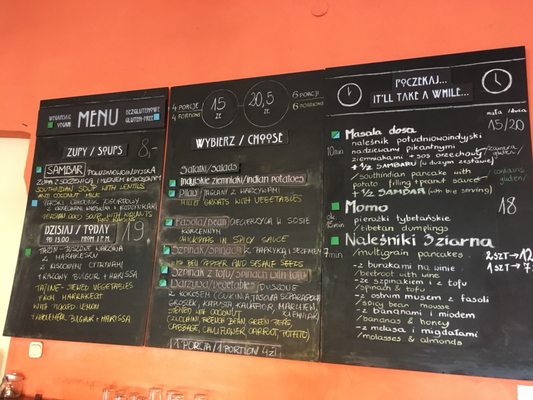 WEGAŃSKIE
VEGAN
MENU
BEZGLUTENOWE
GLUTEN-FREE
ZUPY / SOUPS
8,-
SAMBAR POŁUDNIOWOINDYJSKA
ZUPA Z SOCZEWICĄ I MLEKIEM KOKOSOWYM
SOUTHINDIAN SOUP WITH LENTILS
AND COCONUT MILK
PERSIAN COLD SOUP WITH WALNUTS
DZISIAJ / TODAY
19
PO 13.00 FROM 1 P.M.
TAJINE - DUSZONE WARZYWA
Z MARAKESZU
Z KISZONYMI CYTRYNAMI
+ RAZOWY BULGUR + HARISSA
TAJINE - STEWED VEGETABLES
FROM MARRAKECH
WITH PICKLED LEMON
+ WHOLEMEAL BULGUR + HARISSA
4 PORCJE
4 PORTIONS
15 ZŁ
20,5 ZŁ
6 PORCJI
6 PORTIONS
WYBIERZ / CHOOSE
Sałatki / Salads
Indyjskie ziemniaki / indian potatoes
Pilaw / JAGLANY Z WARZYWAMI
MILLET GROATS WITH VEGETABLES
Fasola / bean
KORZENNYM
CHICKPEAS IN SPICY SAUCE
Szpinak / Spinach Z PAPRYKĄ I SEZAMEM
RED PEPPER AND SESAME SEEDS
Szpinak z tofu / spinach with tofu
Warzywa / vegetables DUSZONE
Z KOKOSEM (CUKINIA, FASOLA SZPARAGOWA,
GROSZEK, KAPUSTA, KALAFIOR, MARCHEW,
ZIEMNIAK)
STEWED WITH COCONUT
(ZUCCHINI, FRENCH BEAN, GREEN PEAS,
CABBAGE, CAULIFLOWER, CARROT, POTATO)
1 PORCJA / 1 PORTION 4 ZŁ
POCZEKAJ...
IT'LL TAKE A WHILE...
mała / duża
15/20
Masala dosa
10 min
naleśnik południowoindyjski
nadziewany pikantnymi
ziemniakami + sos orzechowy
+ 1/2 SAMBARU (w dużym zestawie)
/southindian pancake with
potato filling + peanut sauce
+ 1/2 SAMBAR (with big serving)
contains gluten
Momo
18
pierożki tybetańskie
/tibetan dumplings
Naleśniki 3 ziarna
/multigrain pancakes
2SZT → 12
1SZT → 7
- z burakami na winie
/beetroot with wine
- ze szpinakiem i z tofu
/spinach & tofu
- z ostrym musem z fasoli
/spicy bean mousse
- z bananami i miodem
/bananas & honey
- z melasą i migdałami
/molasses & almonds